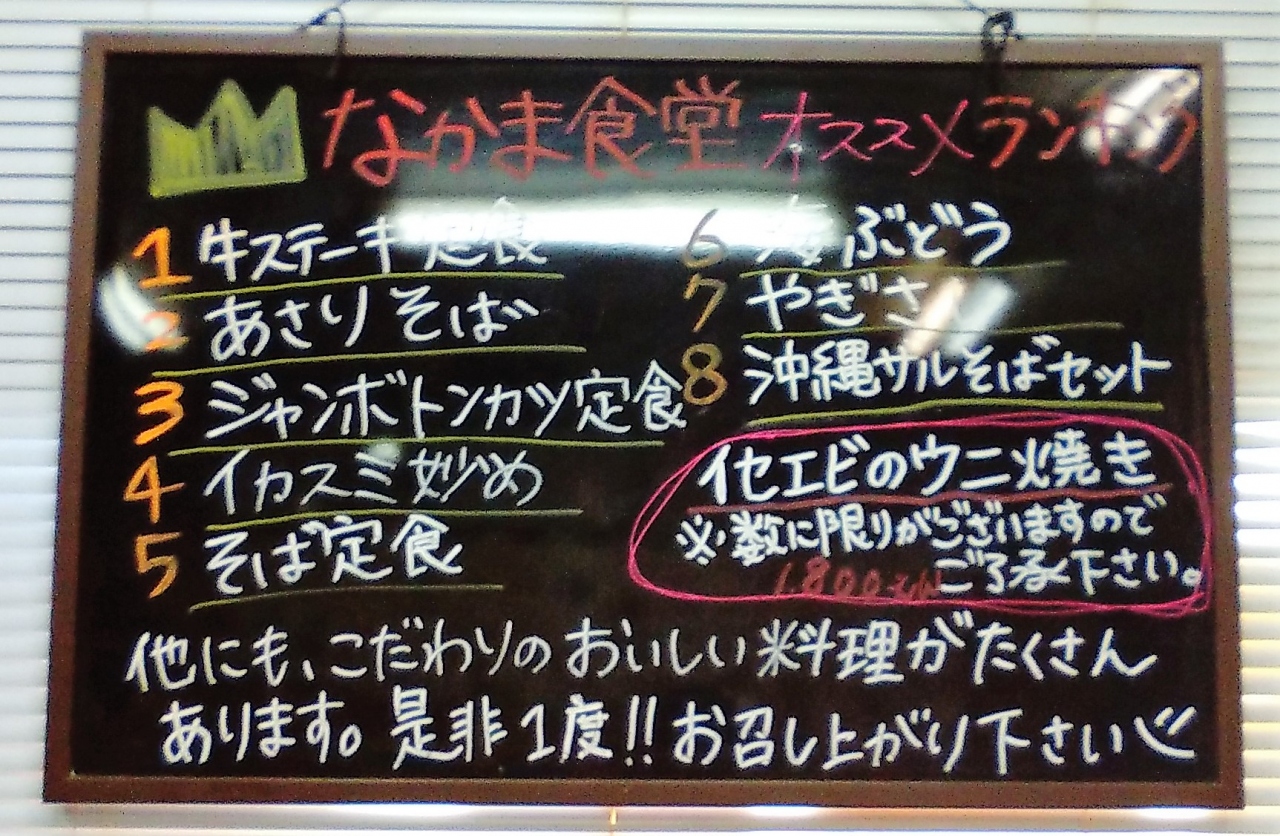 なかま食堂 オススメランキング
1 牛ステーキ定食
2 あさりそば
3 ジャンボトンカツ定食
4 イカスミ炒め
5 そば定食
6 海ぶどう
7 やぎさ
8 沖縄サルそばセット
イセエビのウニ焼き
※数に限りがございますので
ご了承下さい。
1800せん
他にも、こだわりのおいしい料理がたくさん
あります。是非1度!!お召し上がり下さい